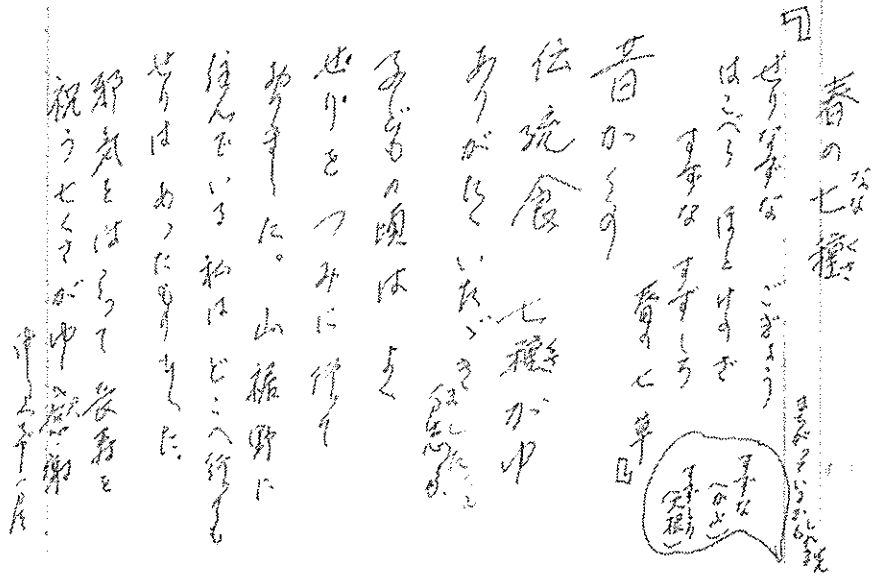 春の七種
なな くさ
「せりなずな ごぎょう
はこべら ほとけのざ
すずな すずしろ
春の七草」
すずな
(かぶ)
すずしろ
(大根)
昔からの
伝統食 七種がゆ
ありがたく いただきました
感謝
子どもの頃は よく
せりを つみに 行て
ありました。山裾野に
住んでいる 私は どこへ行ても
せりは あったものでした。
邪気をはらって 長寿を
祝う七くさがゆ 感謝